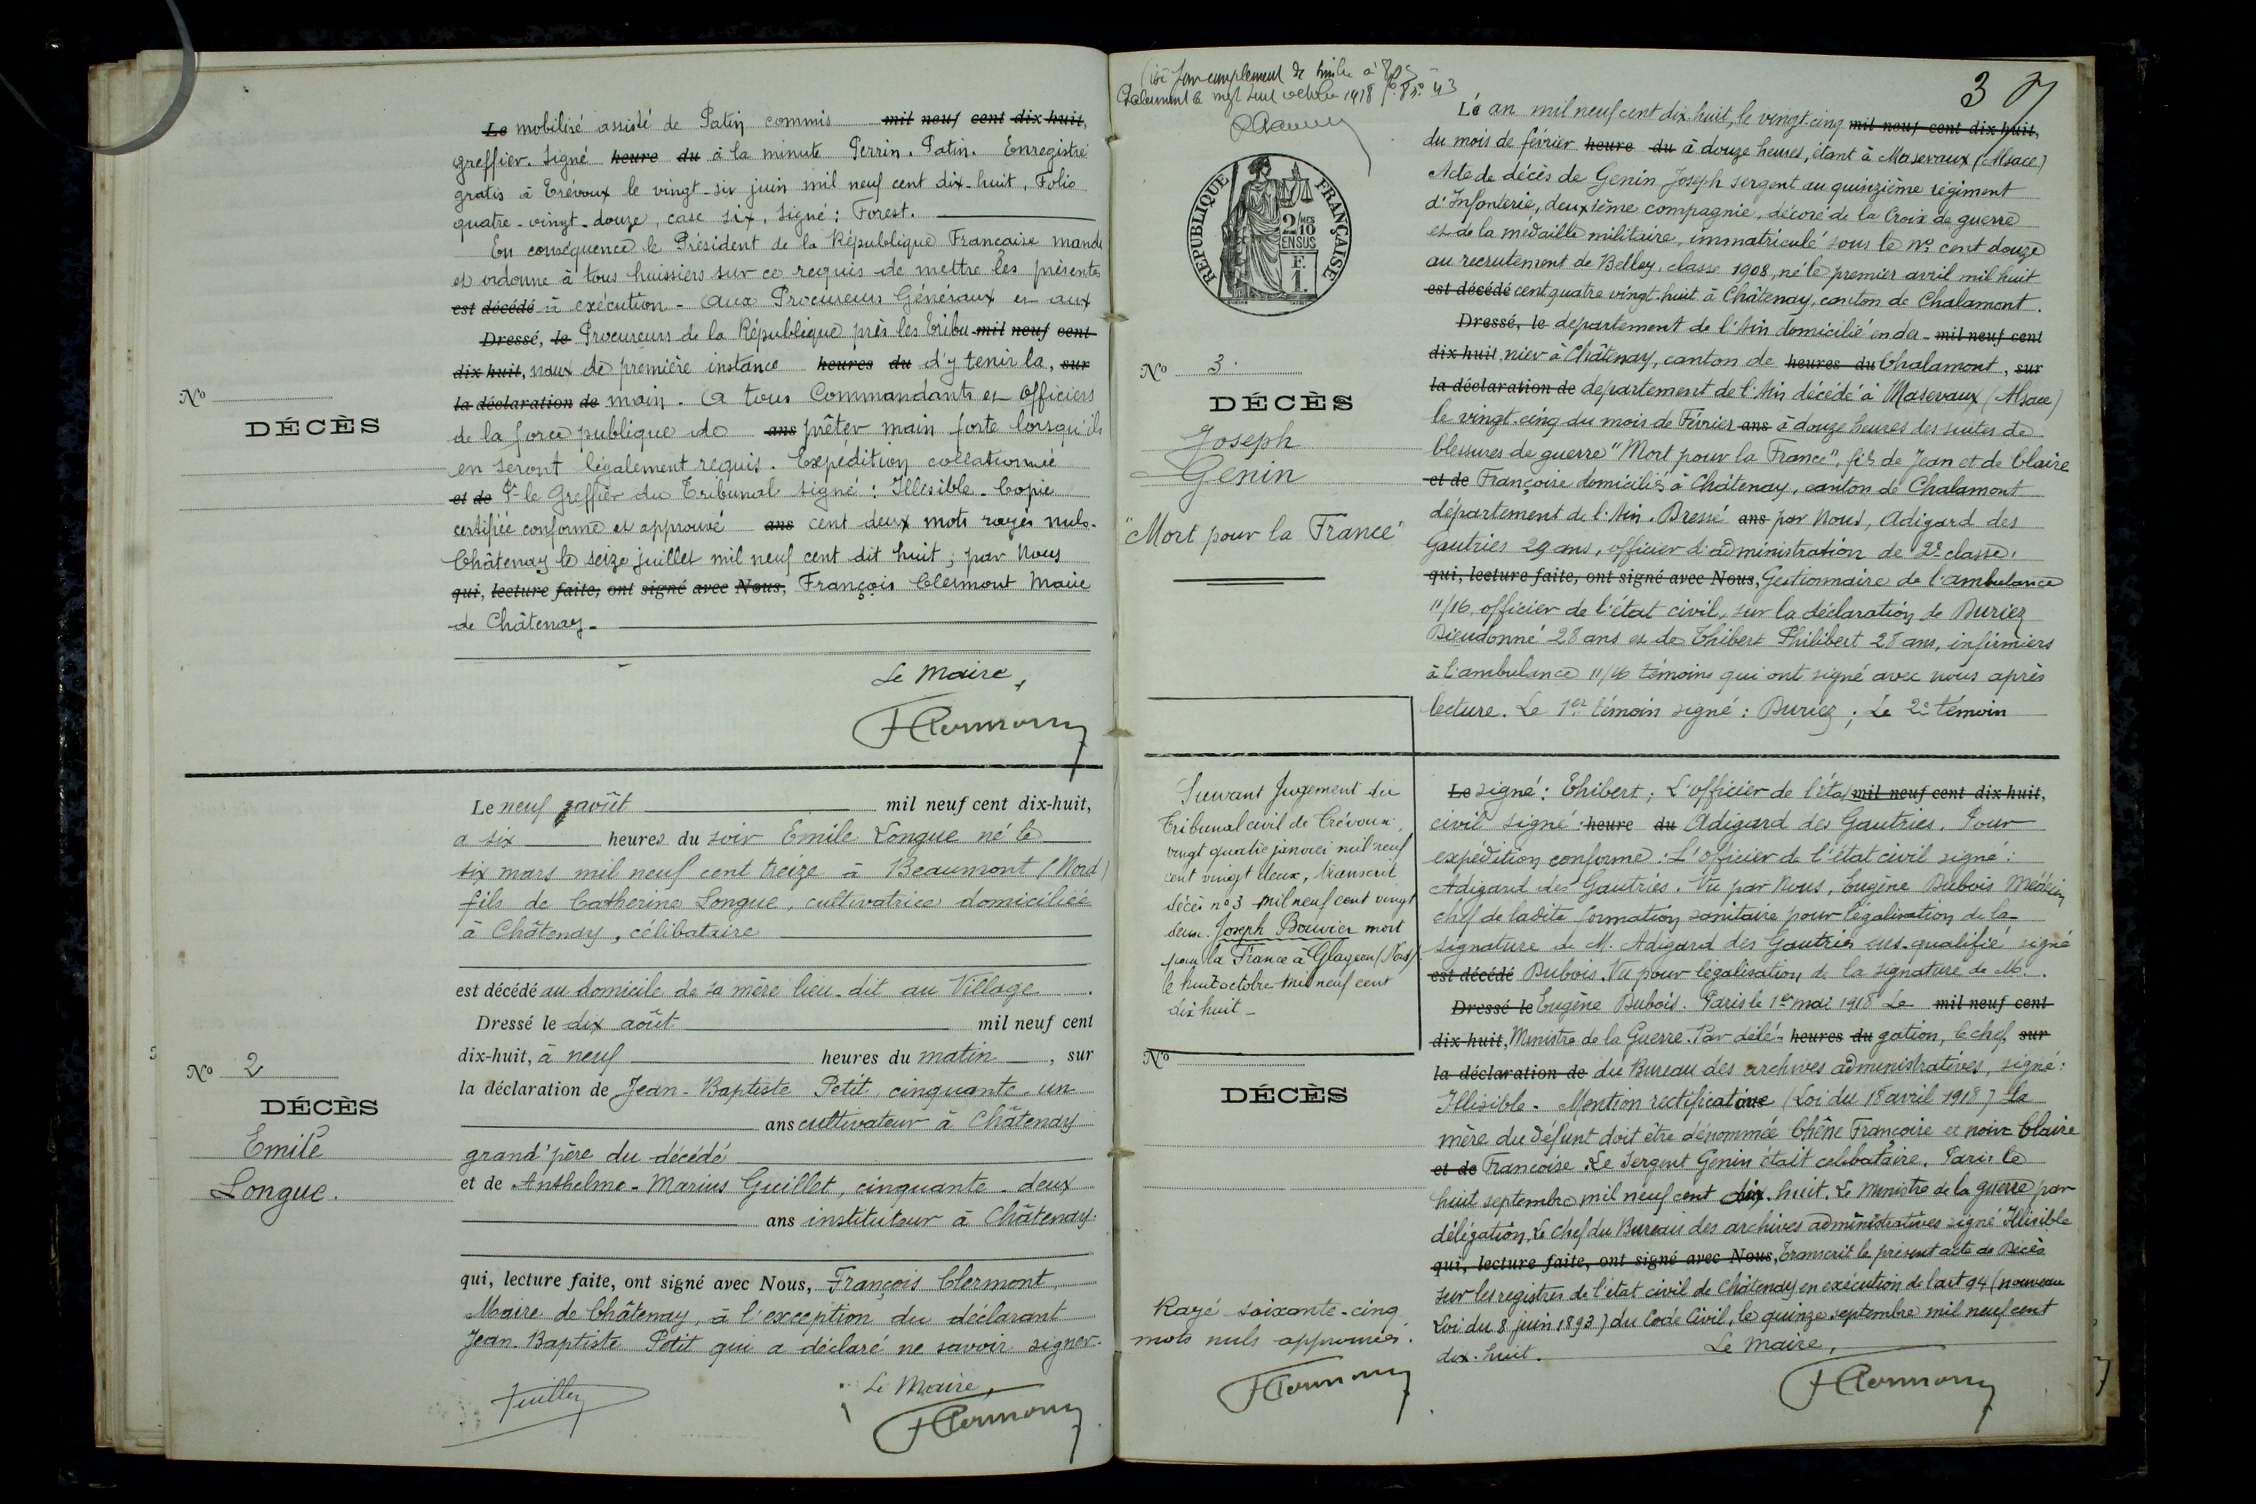 Le mobilisé assisté de Patin commis mil neuf cent dix-huit,
greffier. Signé heure du à la minute Perrin. Patin. Enregistré
gratis à Trévoux le vingt-six juin mil neuf cent dix-huit, Folio
quatre-vingt-douze, case six. Signé : Forest.
En conséquence le Président de la République Française mande
et ordonne à tous huissiers sur ce requis de mettre les présentes
est décédé à exécution - Aux Procureurs Généraux et aux
Dressé, le Procureurs de la République près les Tribu- mil neuf cent
dix huit, naux de première instance heures du d'y tenir la, sur
la déclaration de main. A tous Commandants et Officiers
de la force publique de ans prêter main forte lorsqu'ils
en seront légalement requis. Expédition collationnée
et de Pr le Greffier du Tribunal signé : Illisible. Copie
certifiée conforme et approuvé ans cent deux mots rayés nuls.
Châtenay le seize juillet mil neuf cent dit huit ; par Nous
qui, lecture faite, ont signé avec Nous, François Clermont Maire
de Châtenay.
Le Maire,
FClermont
No
DÉCÈS
Le neuf août mil neuf cent dix-huit,
a six heures du soir Emile Longue né le
six mars mil neuf cent treize à Beaumont (Nord)
fils de Catherine Longue, cultivatrice domiciliée
à Châtenay, célibataire
est décédé au domicile de sa mère lieu-dit au Village.
Dressé le dix août mil neuf cent
dix-huit, à neuf heures du matin, sur
la déclaration de Jean-Baptiste Petit, cinquante-un
ans cultivateur à Châtenay
grand'père du décédé
et de Anthelme-Marius Guillet, cinquante-deux
ans instituteur à Châtenay.
qui, lecture faite, ont signé avec Nous, François Clermont,
Maire de Châtenay, à l'exception du déclarant
Jean-Baptiste Petit qui a déclaré ne savoir signer.
No 2
DÉCÈS
Emile
Longue.
Le Maire,
FClermont
complement de timbre à
Chalamont le vingt huit octobre 1918
3
RÉPUBLIQUE FRANÇAISE
2/10 MES
EN SUS
F.
1.
No 3.
DÉCÈS
Joseph
Genin
"Mort pour la France"
Lé an mil neuf cent dix-huit, le vingt-cinq mil neuf cent dix huit,
du mois de février heure du à douze heures, étant à Masevaux (Alsace)
Acte de décès de Genin Joseph sergent au quinzième régiment
d'Infanterie, deuxième compagnie, décoré de la Croix de guerre
et de la médaille militaire, immatriculé sous le no cent douze
au recrutement de Belley, classe 1908, né le premier avril mil huit
est décédé cent quatre vingt-huit à Châtenay, canton de Chalamont.
Dressé, le département de l'Ain domicilié en der- mil neuf cent
dix huit, nier à Châtenay, canton de heures du Chalamont, sur
la déclaration de département de l'Ain décédé à Masevaux (Alsace)
le vingt-cinq du mois de Février ans à douze heures des suites de
blessures de guerre "Mort pour la France", fils de Jean et de Claire
et de Françoise domiciliés à Châtenay, canton de Chalamont
département de l'Ain. Dressé ans par Nous, Adigard des
Gautries 29 ans, officier d'administration de 2e classe,
qui, lecture faite, ont signé avec Nous, Gestionnaire de l'ambulance
11/16, officier de l'état civil, sur la déclaration de Duriez
Dieudonné 28 ans et de Thibert Philibert 28 ans, infirmiers
à l'ambulance 11/16 témoins qui ont signé avec nous après
lecture. Le 1er témoin signé : Duriez ; Le 2e témoin
Suivant Jugement du
Tribunal civil de Trévoux,
vingt quatre janvier mil neuf
cent vingt deux, transcrit
décès no 3 mil neuf cent vingt
deux. Joseph Bouvier mort
pour la France à Glageon (Nord)
le huit octobre mil neuf cent
dix huit -
No
DÉCÈS
Le signé : Thibert ; L'officier de l'état mil neuf cent dix huit,
civil signé : heure du Adigard des Gautries. Pour
expédition conforme : L'officier de l'état civil signé :
Adigard des Gautries. Vu par Nous, Eugène Dubois Médecin
chef de ladite formation sanitaire pour légalisation de la
signature de M. Adigard des Gautries sus-qualifié signé
est décédé Dubois. Vu pour légalisation de la signature de Mr.
Dressé le Eugène Dubois. Paris le 1er mai 1918 Le mil neuf cent
dix huit, Ministre de la Guerre. Par délé- heures du gation, le chef sur
la déclaration de du Bureau des archives administratives, signé :
Illisible. Mention rectificative (Loi du 18 avril 1918) La
mère du défunt doit être dénommée Chêne Françoise et non Claire
et de Françoise. Le Sergent Genin était celibataire. Paris le
huit septembre mil neuf cent dix-huit. Le Ministre de la guerre par
délégation, Le Chef du Bureau des archives administratives signé Illisible
qui, lecture faite, ont signé avec Nous, Transcrit le présent acte de Décès
sur les registres de l'état civil de Châtenay en exécution de l'art 94 (nouveau
Loi du 8 juin 1893) du Code Civil, le quinze septembre mil neuf cent
dix-huit. Le Maire,
FClermont
Rayé soixante-cinq
mots nuls approuvés.
FClermont